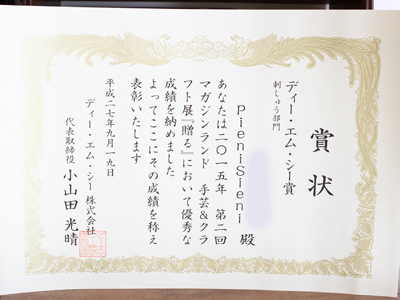 賞状
ディー・エム・シー賞
刺しゅう部門
PieniSieni 殿
あなたは二〇一五年 第二回
マガジンランド 手芸&クラ
フト展『贈る』において優秀な
成績を納めました
よってここにその成績を称え
表彰いたします
平成二七年九月一九日
ディー・エム・シー株式会社
代表取締役 小山田 光晴